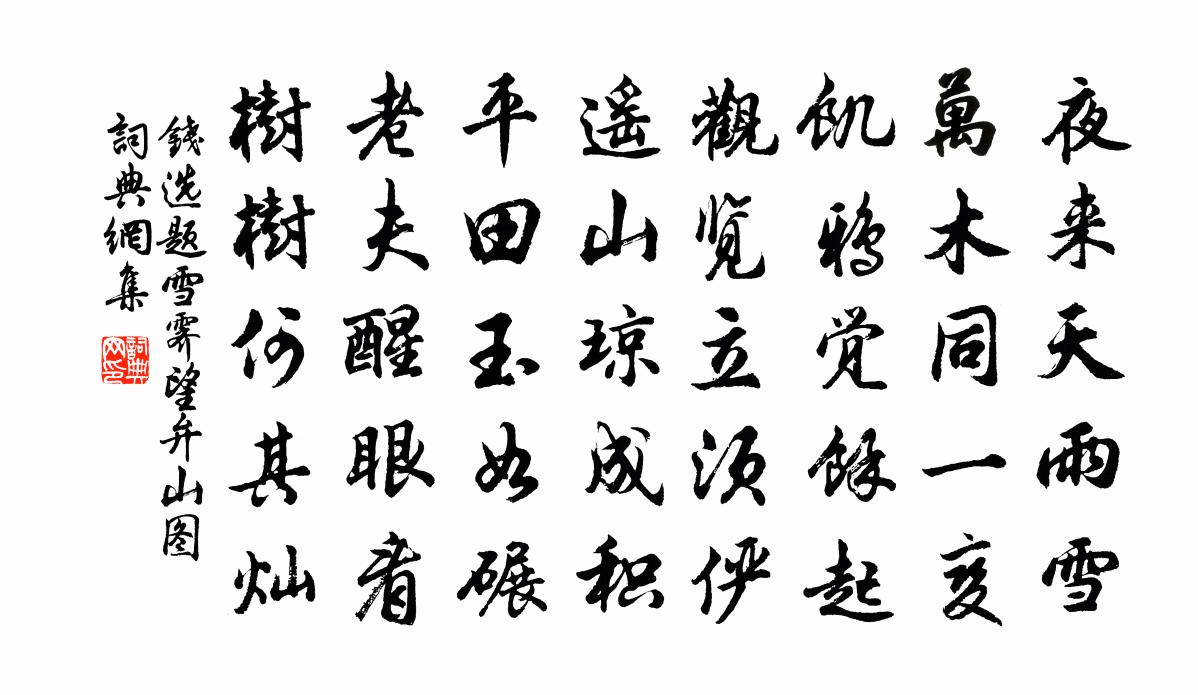 夜来天雨雪
萬木同一变
飢鸦觉餘起
觀览立须俨
遥山琼成积
平田玉如碾
老夫醒眼看
樹樹何其灿
錢选题雪霁望弁山图
詞典網集
詞典网印